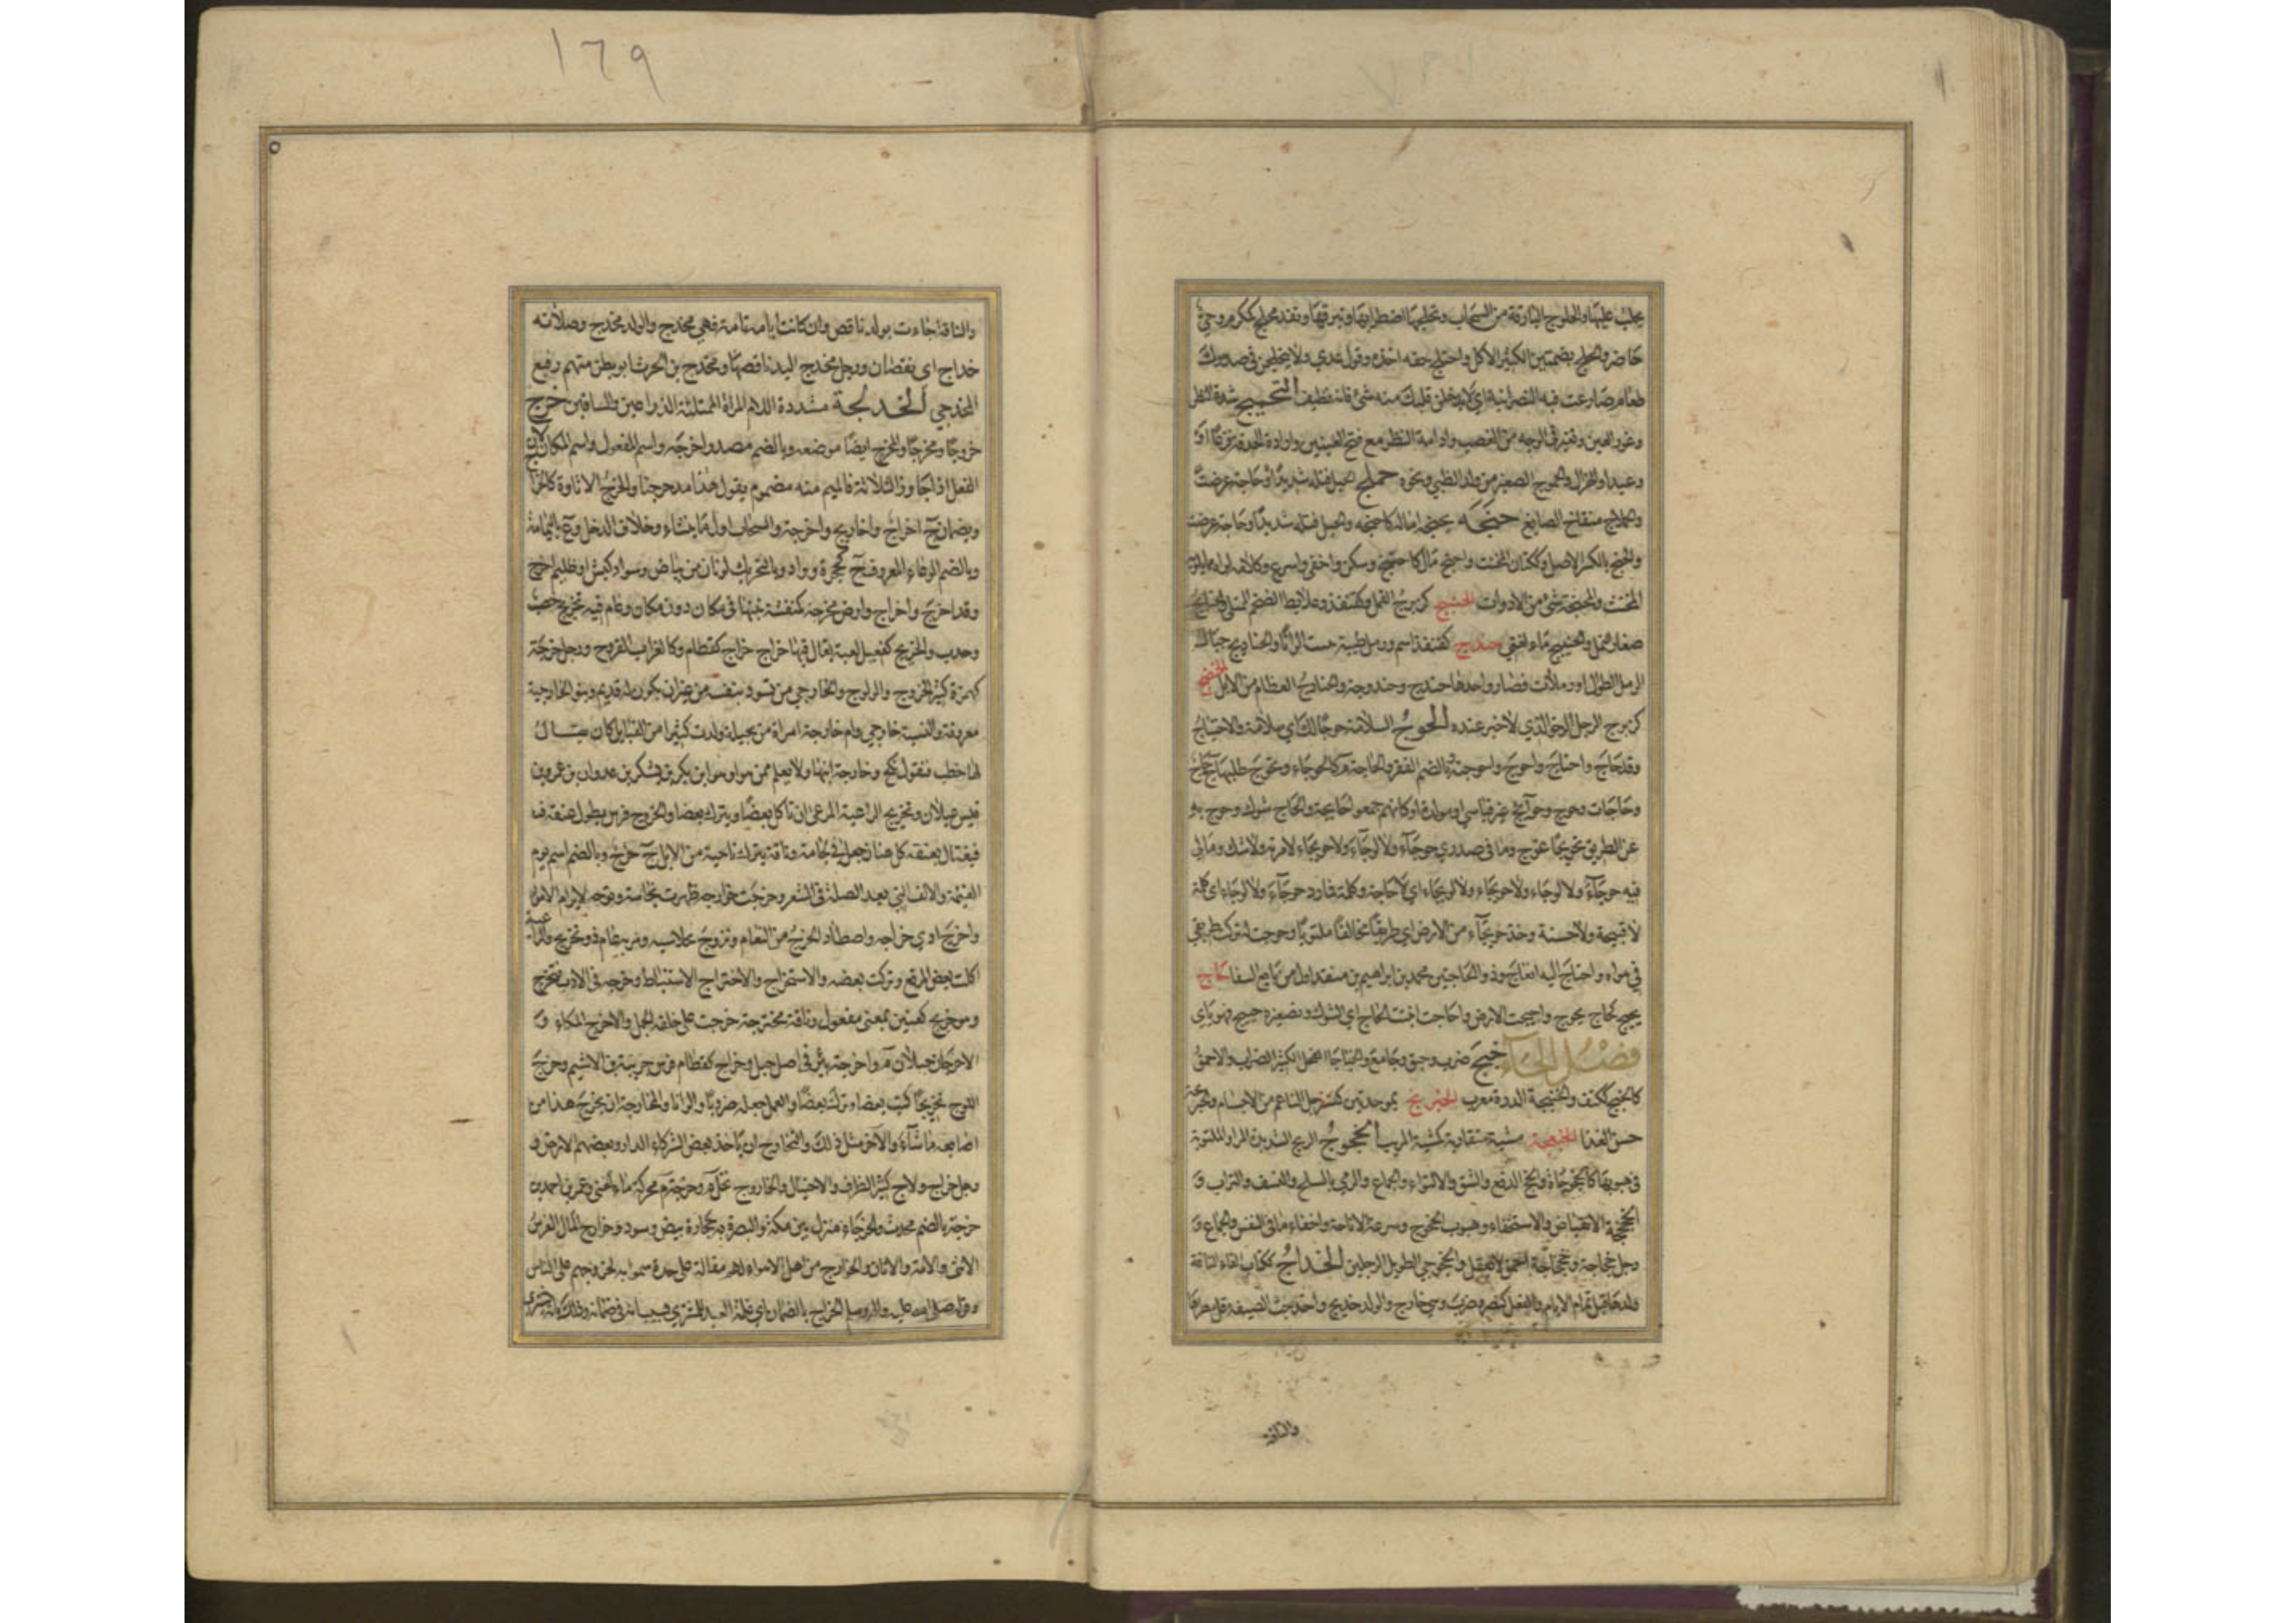 يحلب عليها والحلوج البارقة من السحاب وتحلجها اضطرابها وتبرقها ونقد محلج كمكرم وحي
حاضر والحلج بضمتين الكثير الاكل واحتلج حقه اخذه وقول عدي ولا يتحلجن في صدرك
طعام ضارعت فيه النصرانية اي لا يدخلن قلبك منه شيء فانه نظيف التحميج شدة النظر
وغور العين وتغير في الوجه من الغضب وادامة النظر مع فتح العينين وادارة الحدقة فزعا او
وعيدا والهزال والحموج الصغير من ولد الظبي ونحوه حملج الحبل فتله شديدا
والحملاج منفاخ الصايغ حنجه يحنجه اماله كاحنجه والحبل فتله شديدا وحاجة عرضت
والحنج بالكسر الاصل وككتان المخنث واحنج مال كاحتنج وسكن واخفى واسرع وكلامه لواه كما يلويه
المخنث والمحنجة شيء من الادوات الحنبج كزبرج القمل وكقنفذ وعلابط الضخم الممتلي
صغار النمل والحنيبج ماء لغني حندج كقنفذ اسم ورملة طيبة تنبت الوانا والحناديج حبال
الرمل الطوال او رملات قصار واحدها حندج وحندوجة والحنادج العظام من الابل الحنضج
كزبرج الرجل الرخو الذي لا خير عنده الحوج السلامة حوجا لك اي سلامة والاحتياج
وقد حاج واحتاج واحوج واحوجته وبالضم الفقر والحاجة م كالحوجاء وتحوج طلبها ج حاج
وحاجات وحوج وحوايج غير قياسي او مولدة او كانهم جمعوا حايجة والحاج شوك وحوج به
عن الطريق تحويجا عوج وما في صدري حوجاء ولا لوجاء ولا حويجاء لا مرية ولا شك وما لي
فيه حوجاء ولا لوجاء ولا حويجاء ولا لويجاء اي لا حاجة وكلمته فما رد حوجاء ولا لوجاء اي كلمة
لا قبيحة ولا حسنة وخذ حويجاء من الارض اي طريقا مخالفا ملتويا وحوجت له تركت طريقي
في هواه واحتاج اليه انعاج وذو الحاجتين محمد بن ابراهيم بن منقذ اول من بايع السفاح حاج
يحيج كحاج يحوج واحيجت الارض واحاجت انبتت الحاج اي الشوك وتصغيره حييج فهو ياي
فصل الخاء خبج ضرب وحبق وجامع والخباجاء الفحل الكثير الضراب والاحمق
كالخبج ككتف والخنبجة الدن معرب الخبربج بموحدتين كسفرجل الناعم من الاجسام
حسن الغذا الخبعجة مشية متقاربة كمشية المريب الخجوج الريح الشديدة المر او الملتوية
في هبوبها كالخجوجاة والخج الدفع والشق والالتواء والجماع والرمي بالسلح والنسف بالتراب و
الخجخجة الانقباض والاستخفاء وهبوب الخجوج وسرعة الاناخة واخفاء ما في النفس والجماع و
رجل خجاجة وخجخاجة احمق لا يعقل والخجوجي الطويل الرجلين الخداج ككتاب القاء الناقة
ولدها قبل تمام الايام والفعل كنصر وضرب وهي خادج والولد خديج واخدجت الصيفة قل مطرها
والناقة
١٦٩
والناقة جاءت بولد ناقص وان كانت ايامه تامة فهي مخدج والولد مخدج وصلاته
خداج اي نقصان ورجل مخدج اليد ناقصها ومخدج بن الحرث ابو بطن منهم رفيع
المخدجي الخدلجة مشددة اللام المراة الممتلئة الذراعين والساقين خرج
خروجا ومخرجا والمخرج ايضا موضعه وبالضم مصدر اخرجه واسم المفعول واسم المكان لان
الفعل اذا جاوز الثلاثة فالميم منه مضموم يقول هذا مدحرجنا والخرج الاتاوة كالخراج
ويضمان ج اخراج واخاريج واخرجة والسحاب اول ما ينشاء وخلاف الدخل وع باليمامة
وبالضم الوعاء المعروف ج كجحرة وواد وبالتحريك لونان من بياض وسواد كبش او ظليم اخرج
وقد اخرج واخراج وارض مخرجة كمنقشة نبتها في مكان دون مكان وعام فيه تخريج خصب
وجدب والخريج كقتيل لعبة يقال فيها خراج خراج كقطام وكالغراب القروح ورجل خرجة
كهمزة كثير الخروج والولوج والخارجي من يسود بنفسه من غير ان يكون له قديم وبنو الخارجية
معروفة والنسبة خارجي وام خارجة امراة من بجيلة ولدت كثيرا من القبايل كان يقال
لها خطب فتقول نكح وخارجة ابنها ولا يعلم ممن هو او هو ابن بكر بن يشكر بن عدوان بن عمرو بن
قيس عيلان وتخريج الراعية المرعى ان تاكل بعضا وتترك بعضا والخروج فرس يطول عنقه ف
فيغتال بعنقه كل عنان جعل في لجامه وناقة تبرك ناحية من الابل ج خرج وبالضم اسم يوم
القيمة والالف التي بعد الصلة في الشعر وخرجت خوارجه ظهرت نجابته وتوجه لابرام الامور
واخرج ادى خراجه واصطاد الخرج من النعام وتزوج بخلاسية ومر به عام ذو تخريج والراعية
اكلت بعض المرتع وتركت بعضه والاستخراج والاختراج الاستنباط وخرجه في الادب فتخرج
وهو خريج كعنين بمعنى مفعول وناقة مخترجة خرجت على خلقة الجمل والاخرج المكاء و
الاخرجان جبلان م واخرجة بئر في اصل جبل وخراج كقطام فرس جريبة بن الاشيم وخرج
اللوح تخريجا كتب بعضا وترك بعضا والعمل جعله ضروبا والوانا والمخارجة ان يخرج هذا من
اصابعه ما شاء والآخر مثل ذلك والتخارج ان ياخذ بعض الشركاء الدار وبعضهم الارض و
رجل خراج ولاج كثير الظرف والاحتيال والخاروج نخل م وخرجة محركة ماء لغني وعمر بن احمد بن
خرجة بالضم محدث والخرجاء منزل بين مكة والبصرة به حجارة بيض وسود وخوارج المال الفرس
الانثى والامة والاتان والخوارج من اهل الاهواء لهم مقالة على حدة سموا به لخروجهم على الناس
وقوله صلى الله عليه واله وسلم الخراج بالضمان اي غلة العبد للمشتري بسبب انه في ضمانه وذلك بان يشتري